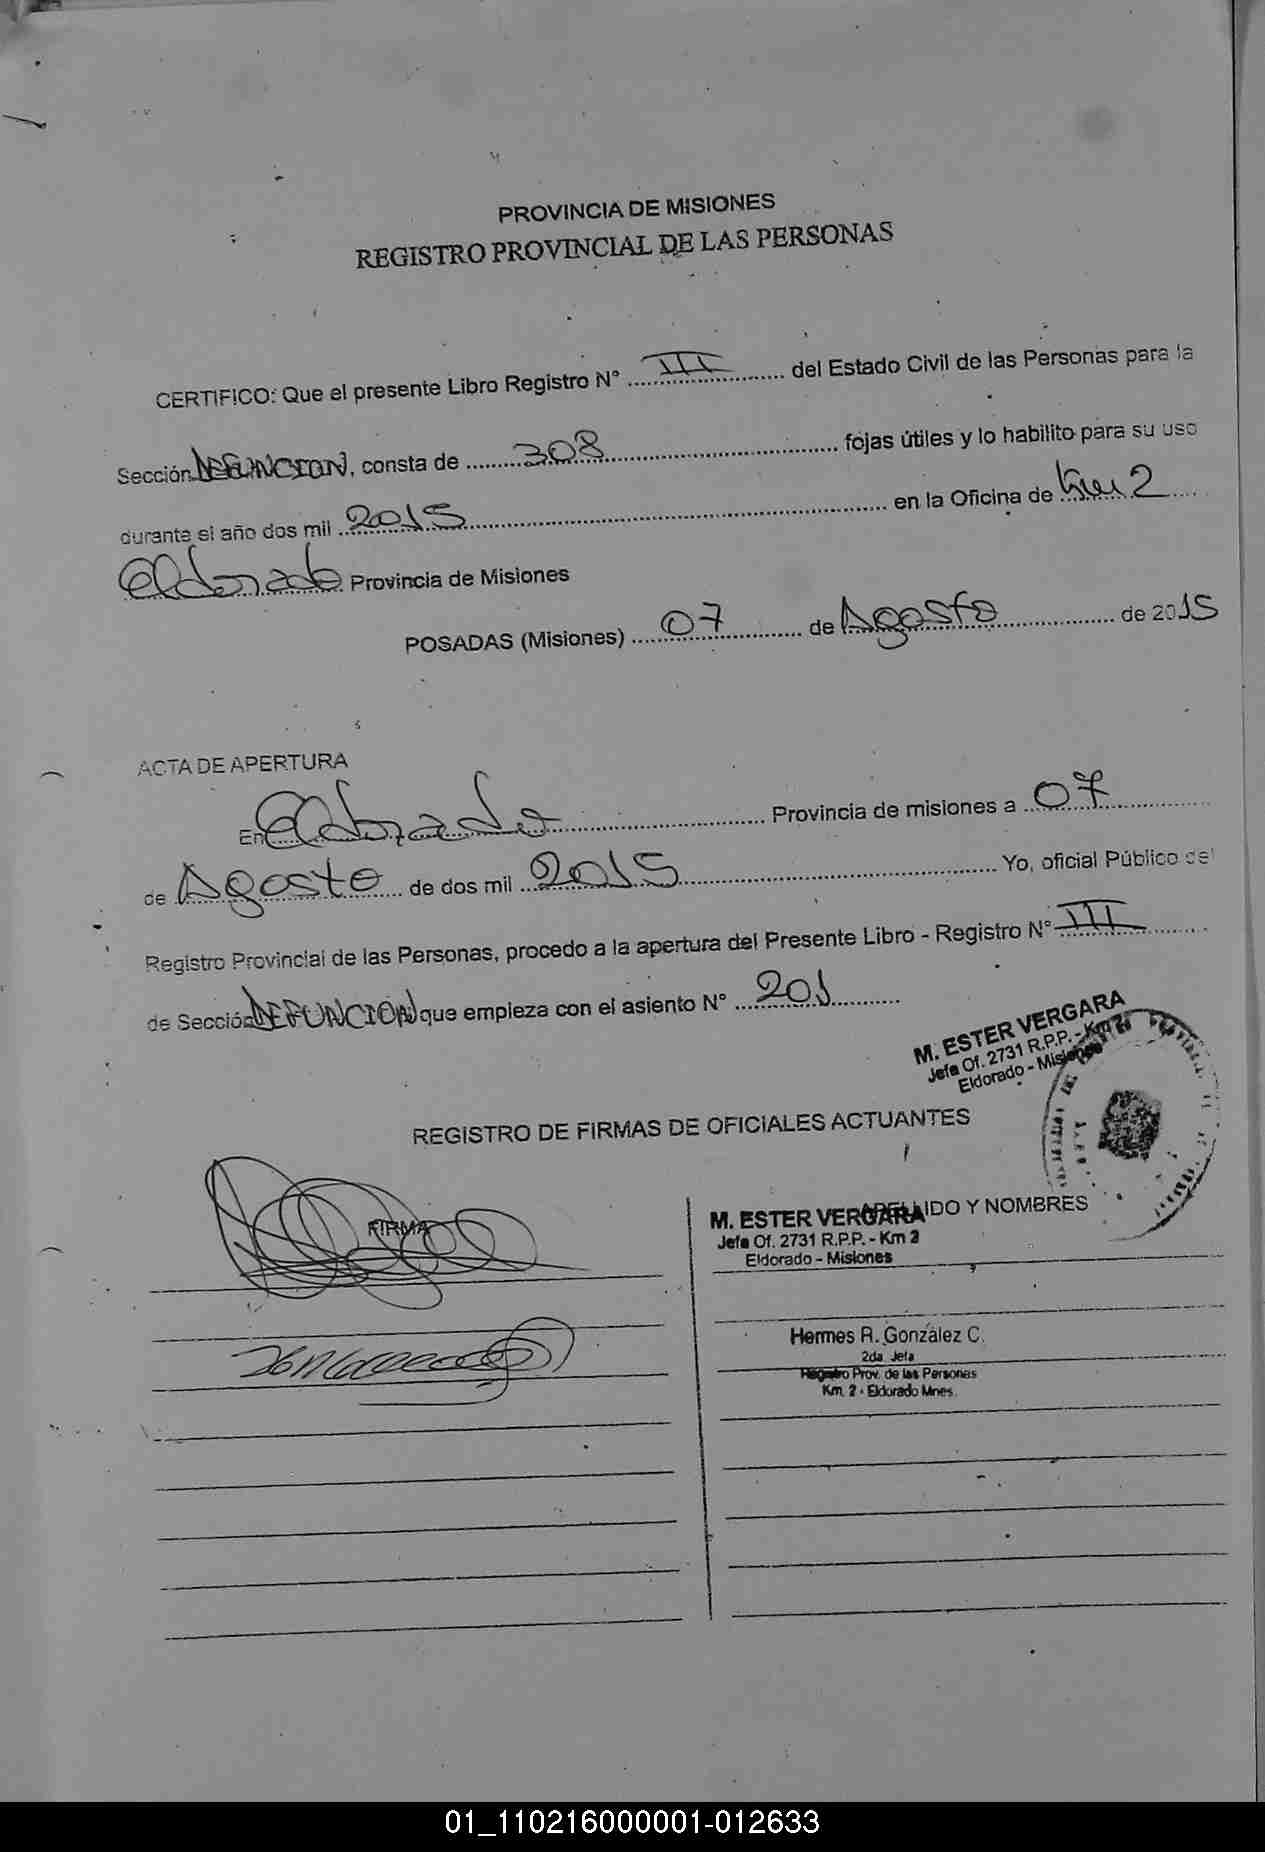 PROVINCIA DE MISIONES
REGISTRO PROVINCIAL DE LAS PERSONAS
CERTIFICO: Que el presente Libro Registro N° III del Estado Civil de las Personas para la
Sección DEFUNCION, consta de 308 fojas útiles y lo habilito para su uso
durante el año dos mil 2015 en la Oficina de Km 2
Eldorado Provincia de Misiones
POSADAS (Misiones) 07 de Agosto de 2015
ACTA DE APERTURA
En Eldorado Provincia de misiones a 07
de Agosto de dos mil 2015 Yo, oficial Público del
Registro Provincial de las Personas, procedo a la apertura del Presente Libro - Registro N° III
de Sección DEFUNCION que empieza con el asiento N° 201
M. ESTER VERGARA
Jefa Of. 2731 R.P.P. - Km 2
Eldorado - Misiones
REGISTRO DE FIRMAS DE OFICIALES ACTUANTES
FIRMA
APELLIDO Y NOMBRES
M. ESTER VERGARA
Jefa Of. 2731 R.P.P. - Km 2
Eldorado - Misiones
Hermes R. González C.
2da. Jefa
Registro Prov. de las Personas
Km. 2 - Eldorado Mnes.
01_110216000001-012633